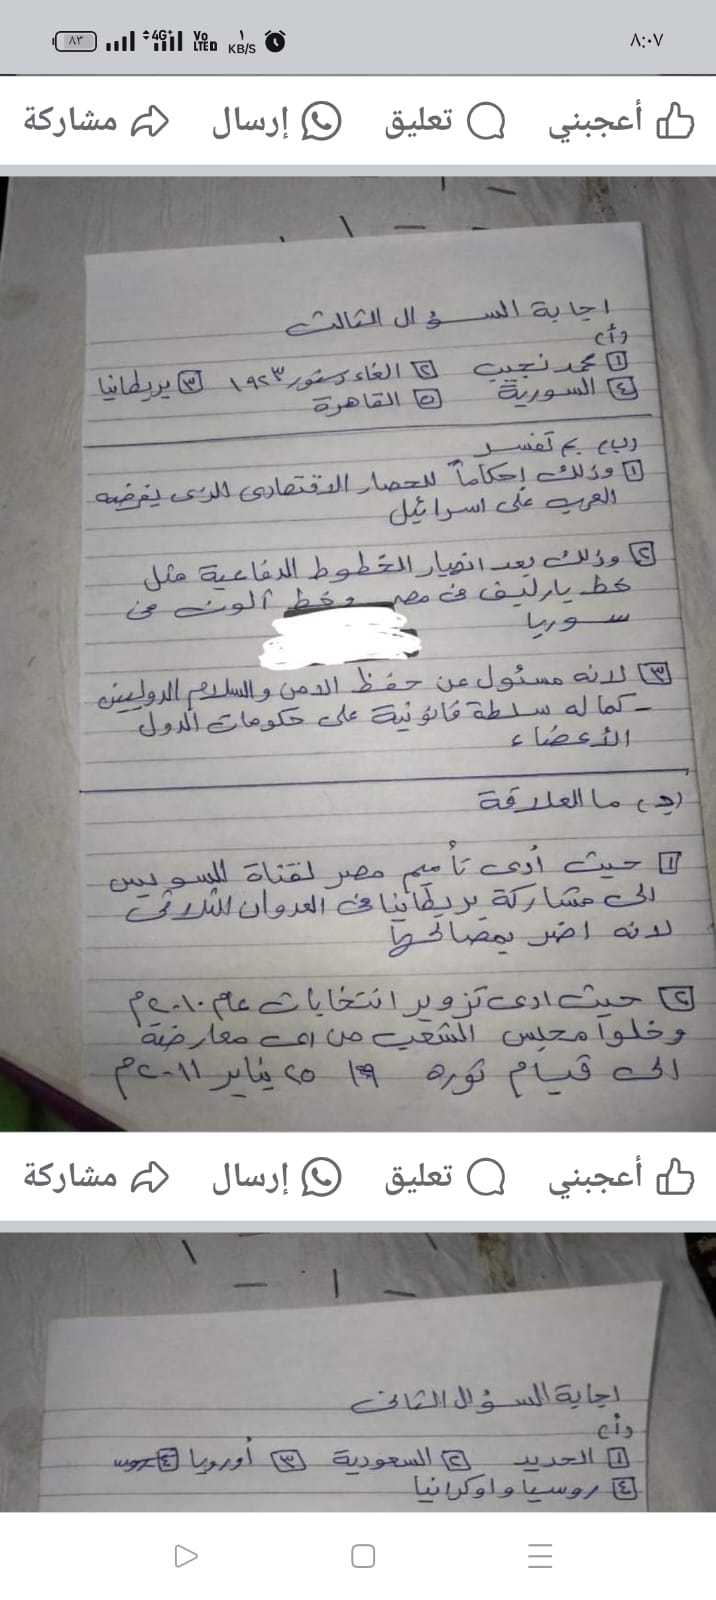 ٨:٠٧
١ KB/S
Vo LTE
4G+
٨٣
أعجبني تعليق إرسال مشاركة
اجابة السؤال الثالث
(أ)
١ محمد نجيب ٢ الغاء دستور ١٩٢٣ ٣ بريطانيا
٤ السورية ٥ القاهرة
(ب) بم تفسر
١ وذلك إحكاماً للحصار الاقتصادى الذى يفرضه
العرب على اسرائيل
٢ وذلك بعد انهيار الخطوط الدفاعية مثل
خط بارليف فى مصر وخط آلون فى
سوريا
٣ لانه مسئول عن حفظ الامن والسلام الدوليين
- كما له سلطة قانونية على حكومات الدول
الأعضاء
(جـ) ما العلاقة
١ حيث أدى تأميم مصر لقناة السويس
الى مشاركة بريطانيا فى العدوان الثلاثى
لانه اضر بمصالحها
٢ حيث ادى تزوير انتخابات عام ٢٠١٠م
وخلوا مجلس الشعب من اى معارضة
الى قيام ثوره ٢٥ يناير ٢٠١١م
أعجبني تعليق إرسال مشاركة
اجابة السؤال الثانى
(أ)
١ الحديد ٢ السعودية ٣ أوروبا ٤
٤ روسيا واوكرانيا